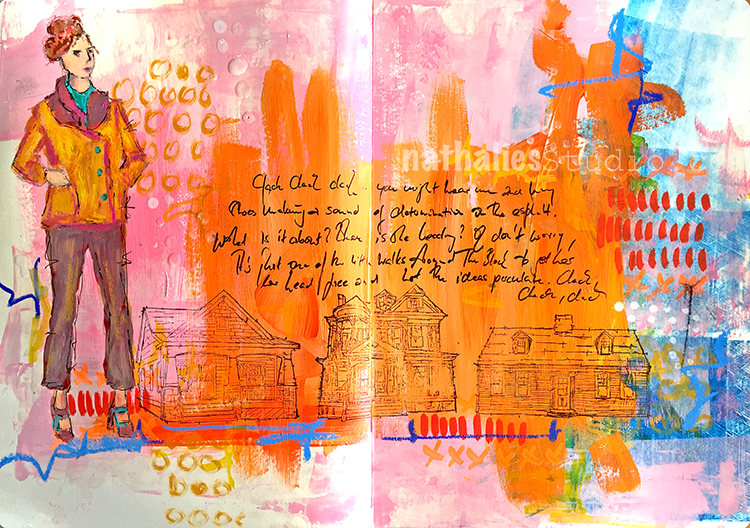 nathalies Studio
Clack clack clack.. you might hear me and my
shoes making a sound of determination on the asphalt.
What is it about? Where is she heading? Oh don't worry,
It's just one of the little walks around the block to get her
her head free and let the ideas percolate. Clack,
Clack, clack